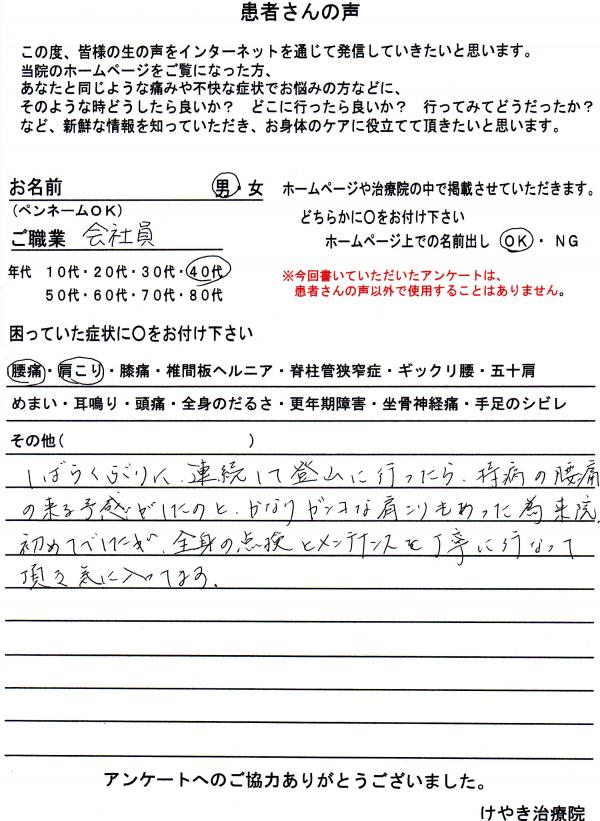 患者さんの声
この度、皆様の生の声をインターネットを通じて発信していきたいと思います。
当院のホームページをご覧になった方、
あなたと同じような痛みや不快な症状でお悩みの方などに、
そのような時どうしたら良いか？ どこに行ったら良いか？ 行ってみてどうだったか？
など、新鮮な情報を知っていただき、お身体のケアに役立てて頂きたいと思います。
お名前 男・女
(ペンネームＯＫ)
ご職業 会社員
年代 １０代・２０代・３０代・４０代
５０代・６０代・７０代・８０代
ホームページや治療院の中で掲載させていただきます。
どちらかに〇をお付け下さい
ホームページ上での名前出し ＯＫ ・ ＮＧ
※今回書いていただいたアンケートは、
患者さんの声以外で使用することはありません。
困っていた症状に〇をお付け下さい
腰痛・肩こり・膝痛・椎間板ヘルニア・脊柱管狭窄症・ギックリ腰・五十肩
めまい・耳鳴り・頭痛・全身のだるさ・更年期障害・坐骨神経痛・手足のシビレ
その他( )
しばらくぶりに、連続して登山に行ったら、持病の腰痛
の来る予感がしたのと、かなりガンコな肩こりもあった為来院。
初めてでしたが、全身の点検とメンテナンスを丁寧に行なって
頂き気に入ってます。
アンケートへのご協力ありがとうございました。
けやき治療院